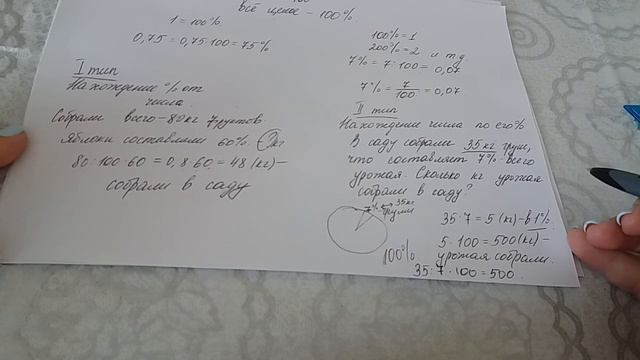 всё целое - 100%.
1 = 100%.
0,75 = 0,75·100 = 75%
I тип
Нахождение % от
числа.
Собрали всего - 80 кг фруктов
Яблоки составляли 60%. ? кг
80:100·60 = 0,8·60 = 48 (кг) -
собрали в саду
100% = 1
200% = 2 и т.д
7% = 7:100 = 0,07
7% = 7/100 = 0,07
II тип
Нахождение числа по его %
В саду собрали 35 кг груш,
что составляет 7% всего
урожая. Сколько кг урожая
собрали в саду?
7% 35кг
груши
100%
35:7 = 5 (кг) - в 1%.
5·100 = 500 (кг) -
урожая собрали.
35:7·100 = 500